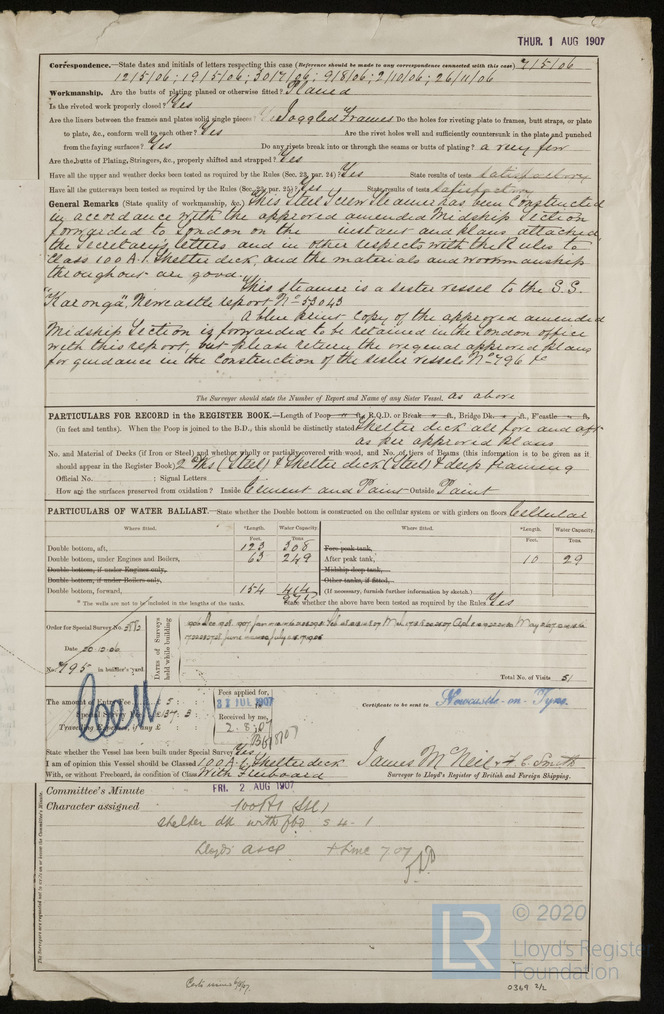 THUR. 1 AUG 1907
Correspondence.—State dates and initials of letters respecting this case (Reference should be made to any correspondence connected with this case) 7/5/06
12/5/06; 19/5/06; 30/7/06; 9/8/06; 2/10/06; 26/11/06
Workmanship. Are the butts of plating planed or otherwise fitted? Planed
Is the riveted work properly closed? Yes
Are the liners between the frames and plates solid single pieces? Joggled Frames Do the holes for riveting plate to frames, butt straps, or plate
to plate, &c., conform well to each other? Yes Are the rivet holes well and sufficiently countersunk in the plate and punched
from the faying surfaces? Yes Do any rivets break into or through the seams or butts of plating? a very few
Are the butts of Plating, Stringers, &c., properly shifted and strapped? Yes
Have all the upper and weather decks been tested as required by the Rules (Sec. 23, par. 24)? Yes State results of tests Satisfactory
Have all the gutterways been tested as required by the Rules (Sec. 23, par. 25)? Yes State results of tests Satisfactory
General Remarks (State quality of workmanship, &c.) This Steel Screw Steamer has been Constructed
in accordance with the approved amended Midship Section
forwarded to London on the instant and plans attached,
the Secretary's letters and in other respects with the Rules to
Class 100 A.1. Shelter deck, and the materials and workmanship
throughout are good.
This steamer is a sister vessel to the S.S.
"Karonga", Newcastle report No 53043
A blue print copy of the approved amended
Midship Section is forwarded to be retained in the London office
with this report, but please return the original approved plans
for guidance in the Construction of the sister vessels No 796 &c
The Surveyor should state the Number of Report and Name of any Sister Vessel. as above
PARTICULARS FOR RECORD in the REGISTER BOOK.—Length of Poop " ft., R.Q.D. or Break " ft., Bridge Dk. " ft., F'castle " ft.
(in feet and tenths). When the Poop is joined to the B.D., this should be distinctly stated Shelter deck all fore and aft
as per approved plans
No. and Material of Decks (if Iron or Steel) and whether wholly or partially covered with wood, and No. of tiers of Beams (this information is to be given as it
should appear in the Register Book) 2 Dks (Steel) & Shelter deck (Steel) & deep framing
Official No. ; Signal Letters
How are the surfaces preserved from oxidation? Inside Cement and Paint Outside Paint
PARTICULARS OF WATER BALLAST.—State whether the Double bottom is constructed on the cellular system or with girders on floors Cellular
Where fitted. *Length. Water Capacity. Where fitted. *Length. Water Capacity.
Feet. Tons Feet. Tons.
Double bottom, aft, 123 308 Fore peak tank,
Double bottom, under Engines and Boilers, 63 249 After peak tank, 10 29
Double bottom, if under Engines only, Midship deep tank,
Double bottom, if under Boilers only, Other tanks, if fitted,
Double bottom, forward, 154 414 (If necessary, furnish further information by sketch.)
* The wells are not to be included in the lengths of the tanks. State whether the above have been tested as required by the Rules Yes
Order for Special Survey No.
Date 20.12.06
No. 795 in builder's yard.
Dates of Surveys held while building
Total No. of Visits 51
The amount of Entry Fee £ 5 : :
Special Survey Fee £
Travelling Expenses, if any £
Fees applied for,
31 JUL 1907
Received by me,
2.8.07
Certificate to be sent to Newcastle-on-Tyne
State whether the Vessel has been built under Special Survey Yes
I am of opinion this Vessel should be Classed 100 A.1. Shelter deck James McNeil & F. C. Smith
With, or without Freeboard, as condition of Class With Freeboard Surveyor to Lloyd's Register of British and Foreign Shipping.
Committee's Minute FRI. 2 AUG 1907
Character assigned 100A1 (Stl)
Shelter dk with fbd S 4 - 1
Lloyds A&CP + LMC 7 07
The Surveyors are requested not to write on or below the Committee's Minute.
© 2020
LR
Lloyd's Register
Foundation
0369 2/2